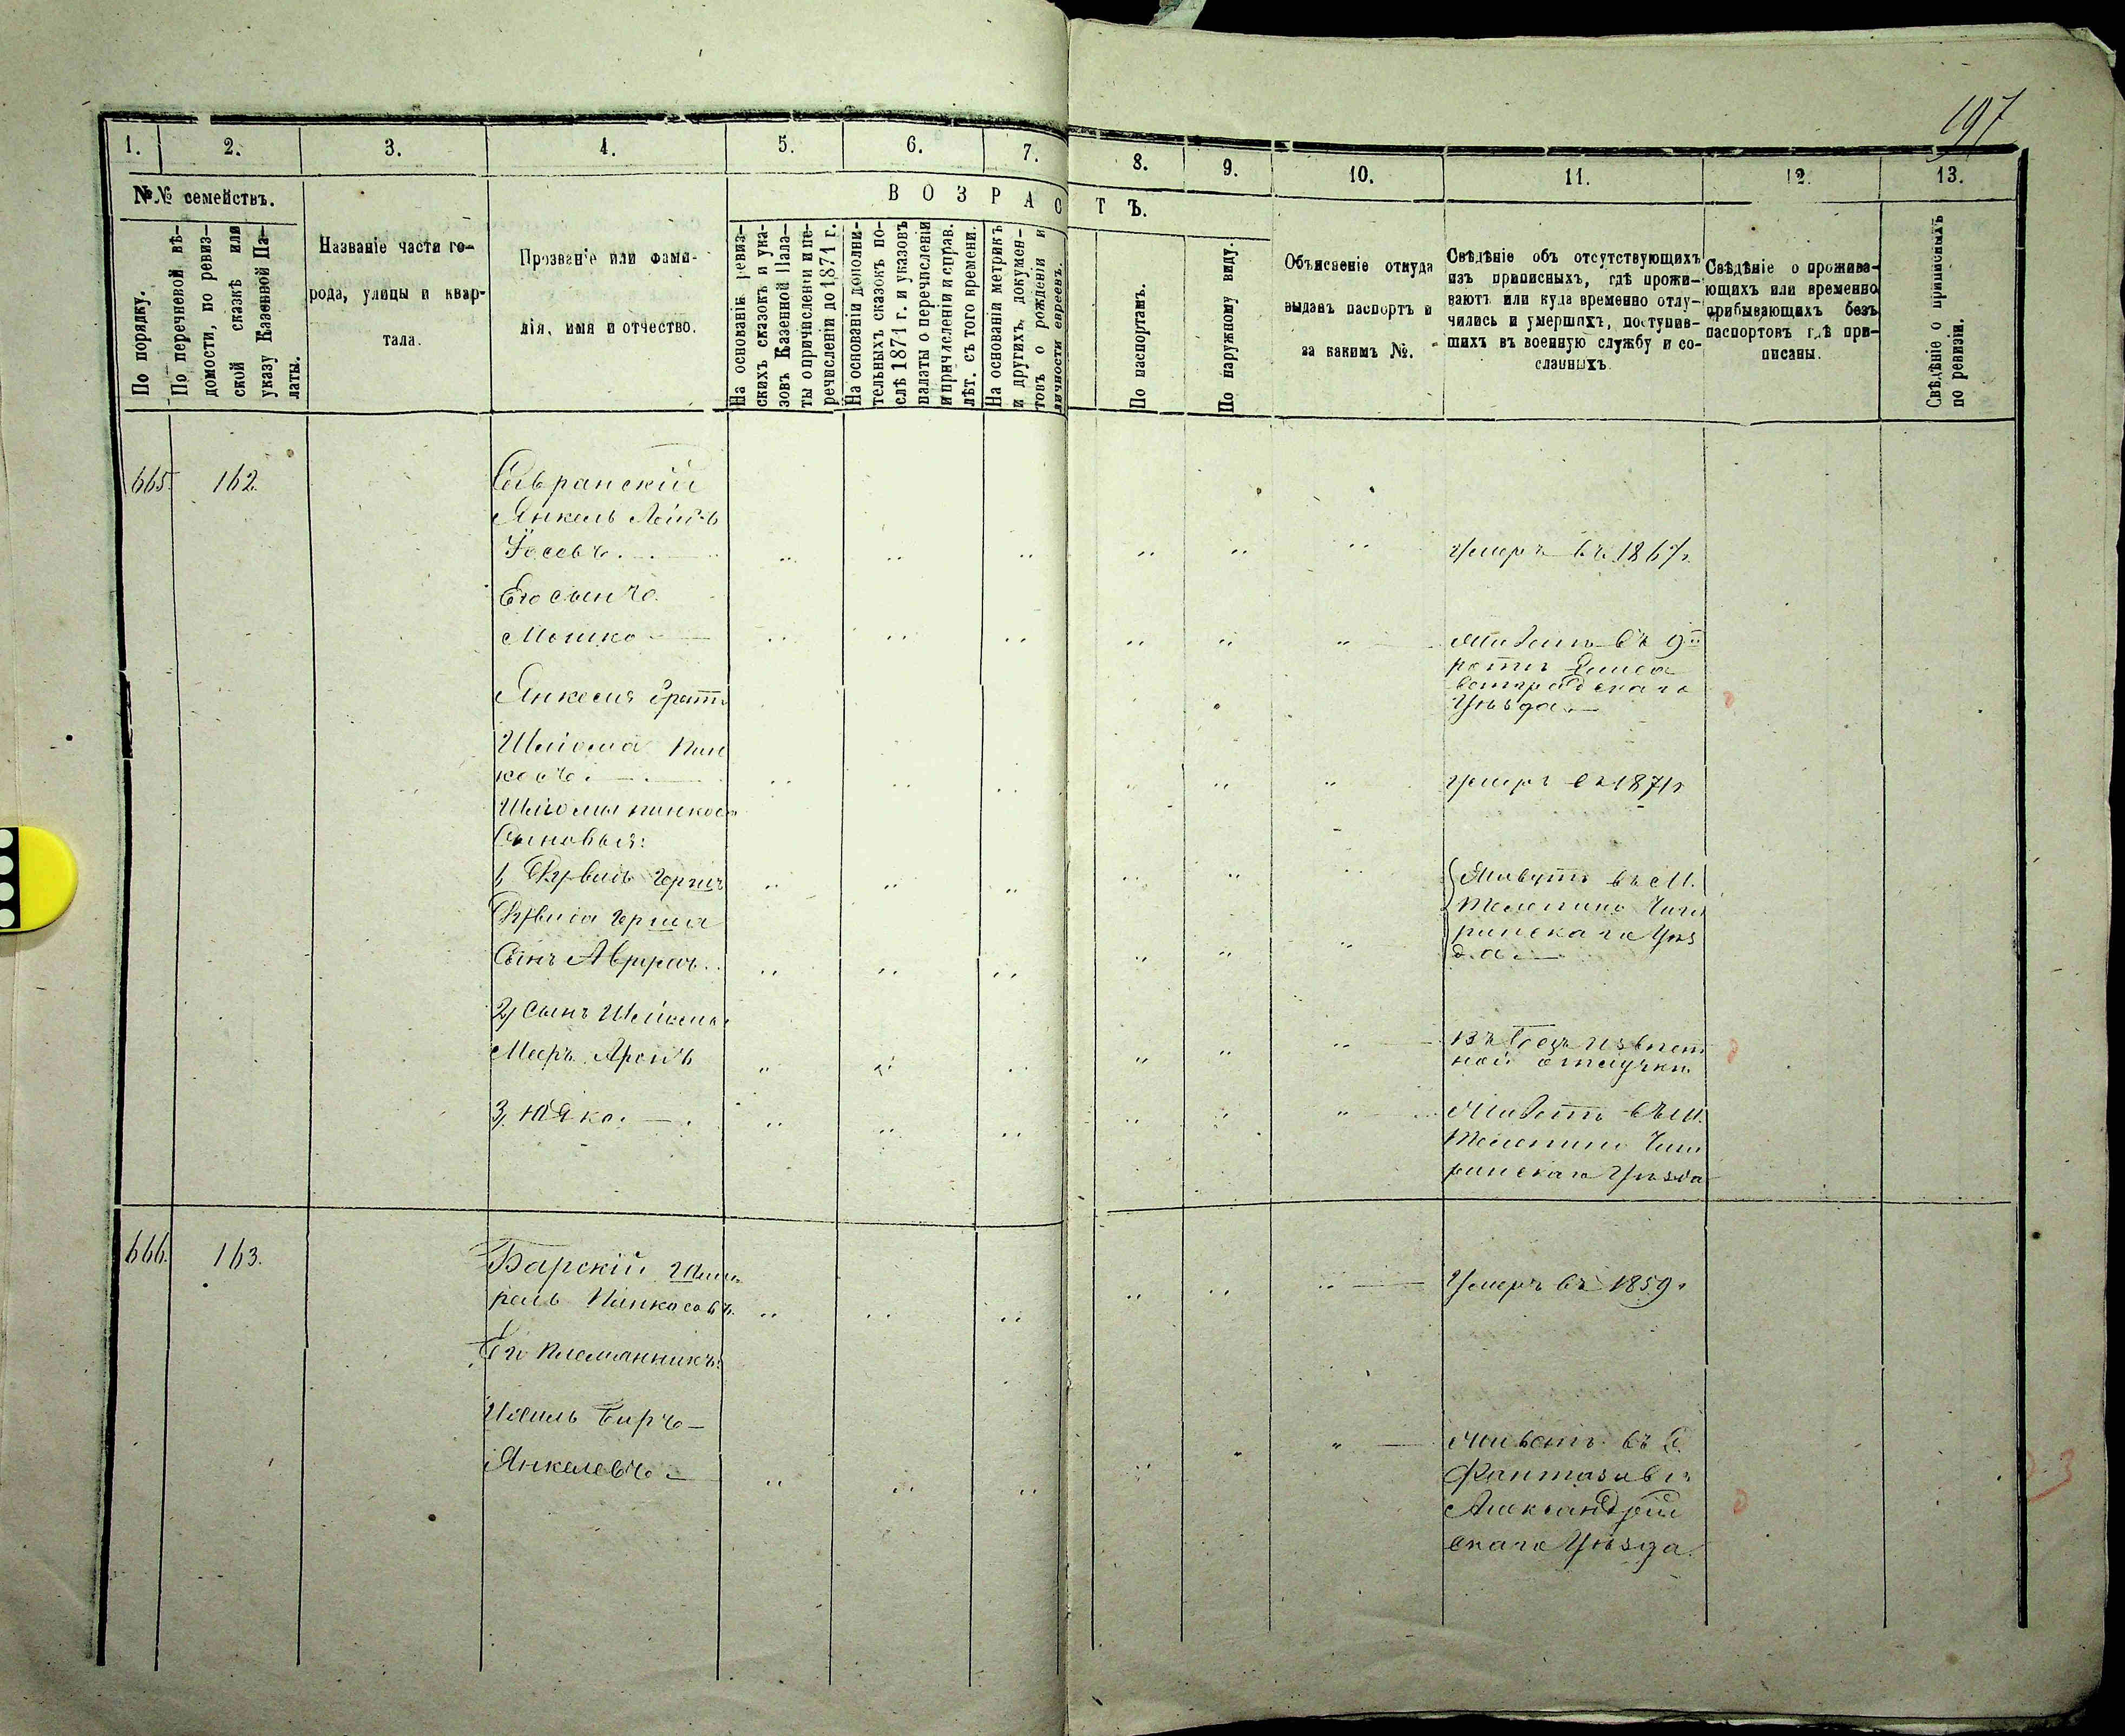 197
1.
2.
3.
4.
5.
6.
7.
8.
9.
10.
11.
12.
13.
№№ семействъ.
По порядку.
По перечневой вѣ-
домости, по ревиз-
ской сказкѣ или
указу Казенной Па-
латы.
Названіе части го-
рода, улицы и квар-
тала.
Прозваніе или фами-
лія, имя и отчество.
ВОЗРАСТЪ.
На основаніи ревиз-
скихъ сказокъ и ука-
зовъ Казенной Пала-
ты опричислении и пе-
речисленіи до 1871 г.
На основаніи дополни-
тельныхъ сказокъ по-
слѣ 1871 г. и указовъ
палаты о перечисленіи
и причисленіи и справ.
лѣт. съ того времени.
На основаніи метрикъ
и другихъ докумен-
товъ о рожденіи и
личности евреевъ.
По паспортамъ.
По наружному виду.
Объясненіе откуда
выданъ паспортъ и
за какимъ №.
Свѣдѣніе объ отсутствующихъ
изъ приписныхъ, гдѣ прожи-
ваютъ или куда временно отлу-
чились и умершихъ, поступив-
шихъ въ военную службу и со-
сланныхъ.
Свѣдѣніе о прожива-
ющихъ или временно
прибывающихъ безъ
паспортовъ гдѣ при-
писаны.
Свѣдѣніе о приписныхъ
по ревизіи.
665.
162.
Савранскій
Янкель Лейбъ
Іосовъ.
умеръ въ 1867г.
Его сынъ
Мошко
живетъ въ 9й
ротѣ Елиса
ветградскаго
Уѣзда.
Янкеля братъ
Шлiома Пин
косъ.
умеръ въ 1871г.
Шлiома пинкоса
сыновья:
1, Рувинъ Гершъ
Живутъ въ М.
Телепино Чиги
ринскаго Уѣз
да.
Рувина Герша
Сынъ Аврумъ..
2, Сынъ Шлiомы
Мееръ Аронъ
въ безъ извѣст
ной отлучки.
3, Юдко.
Живетъ въ М.
Телепино Чиги
ринскаго Уѣзда
666.
163.
Барскій
Пинкосовъ.
Умеръ въ 1859г
Его племянникъ:
Иосиль Беръ
Янкелевъ
Живетъ въ д.
Александрій
скаго Уѣзда.